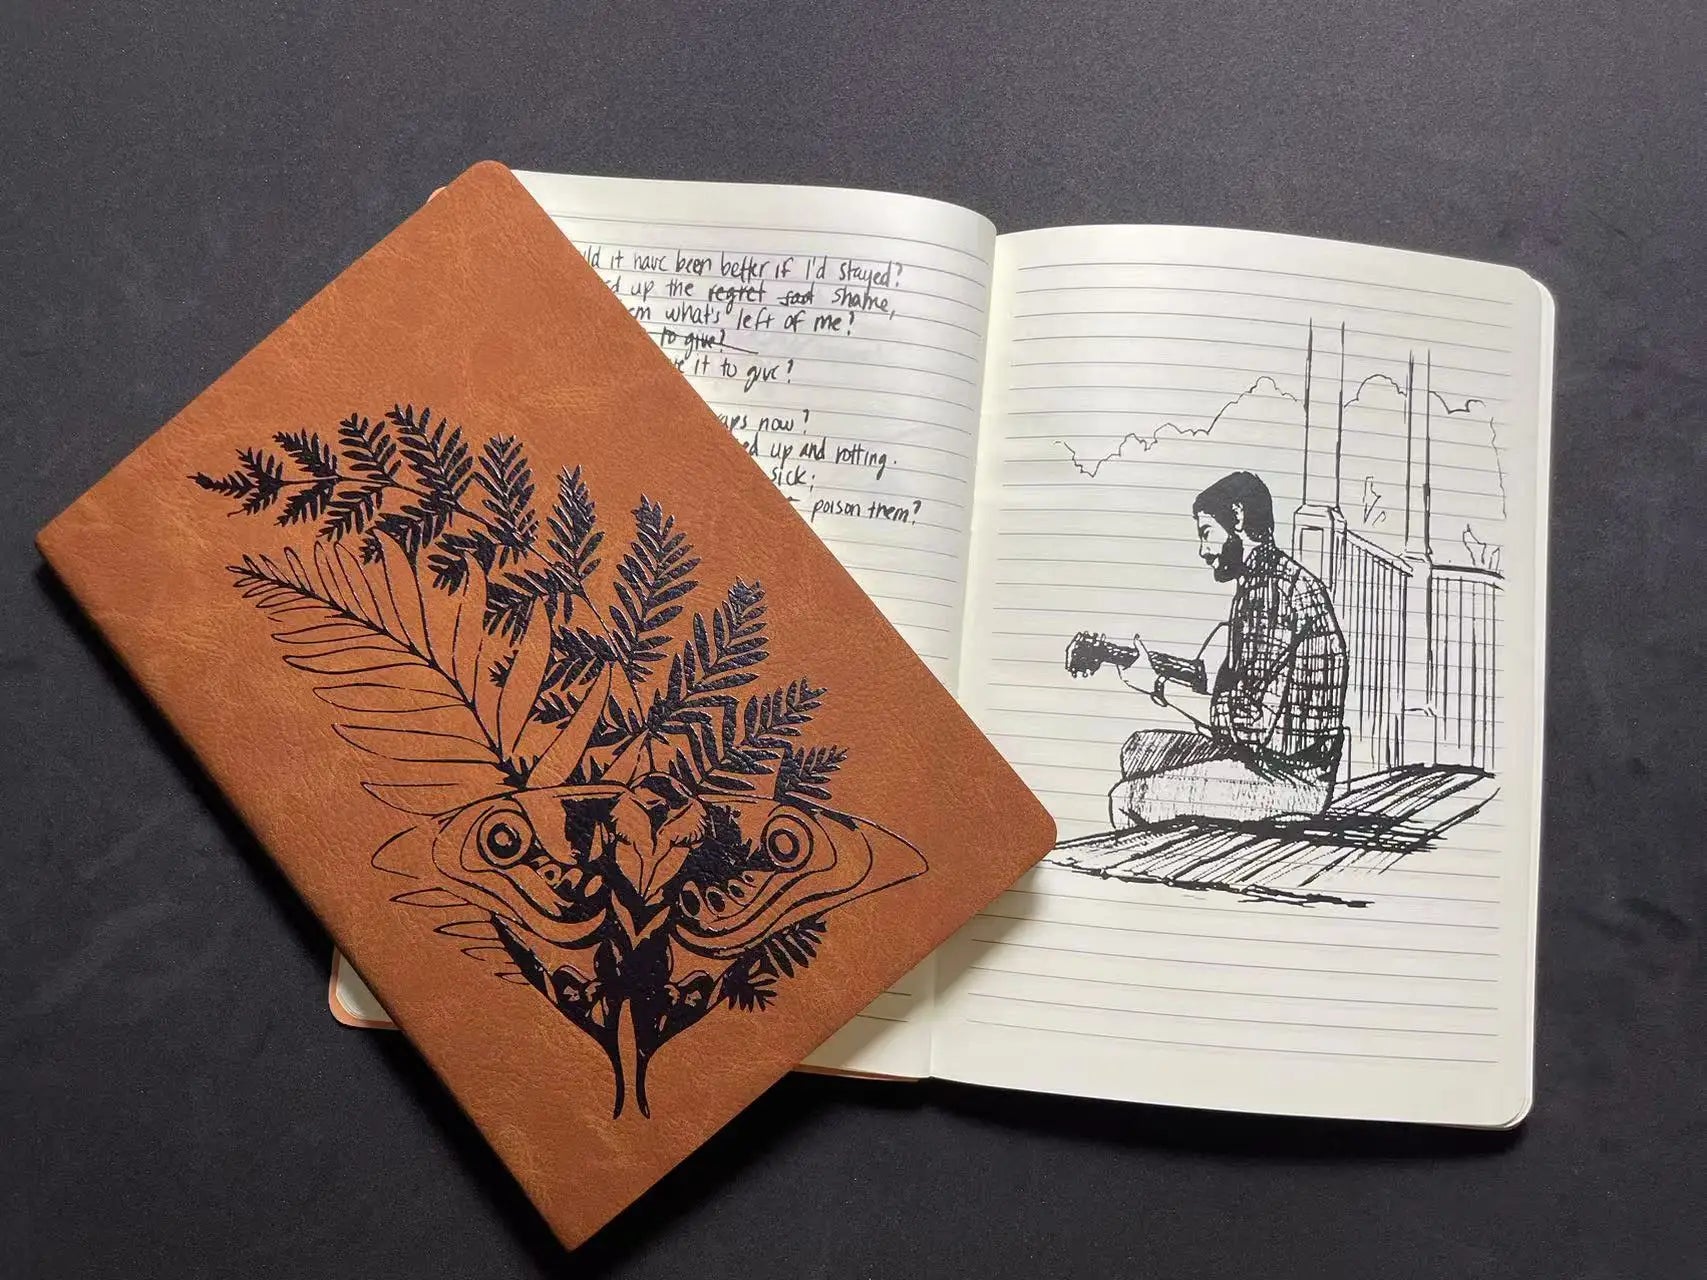 it have been better if I'd stayed?
up the regret shame,
what's left of me?
to give?
it to give?
now?
up and rotting.
sick;
poison them?